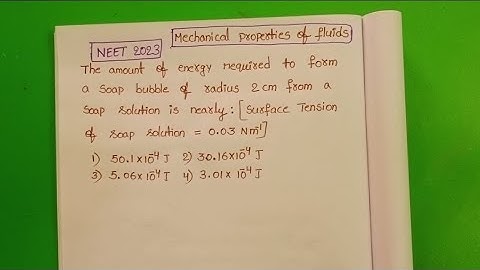 NEET 2023
Mechanical properties of fluids
The amount of energy required to form
a soap bubble of radius 2 cm from a
soap solution is nearly: [Surface Tension
of soap solution = 0.03 Nm⁻¹]
1) 50.1×10⁻⁴ J 2) 30.16×10⁻⁴ J
3) 5.06×10⁻⁴ J 4) 3.01×10⁻⁴ J